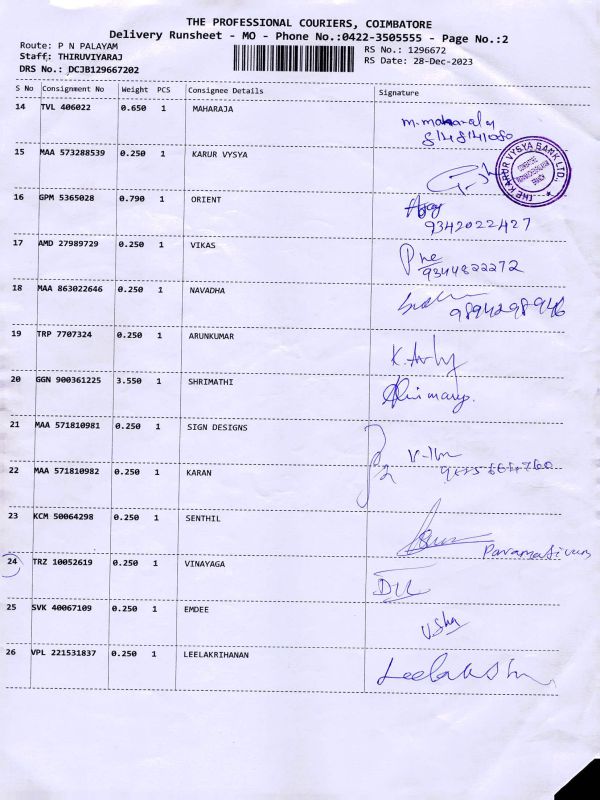 THE PROFESSIONAL COURIERS, COIMBATORE
Delivery Runsheet - MO - Phone No.:0422-3505555 - Page No.:2
Route: P N PALAYAM
RS No.: 1296672
Staff: THIRUVIYARAJ
RS Date: 28-Dec-2023
DRS No.: DCJB129667202
S No Consignment No Weight PCS Consignee Details Signature
14 TVL 406022 0.650 1 MAHARAJA
15 MAA 573288539 0.250 1 KARUR VYSYA
THE KARUR VYSYA BANK LTD.,
COIMBATORE
BRANCH
16 GPM 5365028 0.790 1 ORIENT
9342022427
17 AMD 27989729 0.250 1 VIKAS
9344822272
18 MAA 863022646 0.250 1 NAVADHA
9894298946
19 TRP 7707324 0.250 1 ARUNKUMAR
20 GGN 900361225 3.550 1 SHRIMATHI
21 MAA 571810981 0.250 1 SIGN DESIGNS
22 MAA 571810982 0.250 1 KARAN
23 KCM 50064298 0.250 1 SENTHIL
24 TRZ 10052619 0.250 1 VINAYAGA
25 SVK 40067109 0.250 1 EMDEE
Usha
26 VPL 221531837 0.250 1 LEELAKRIHANAN